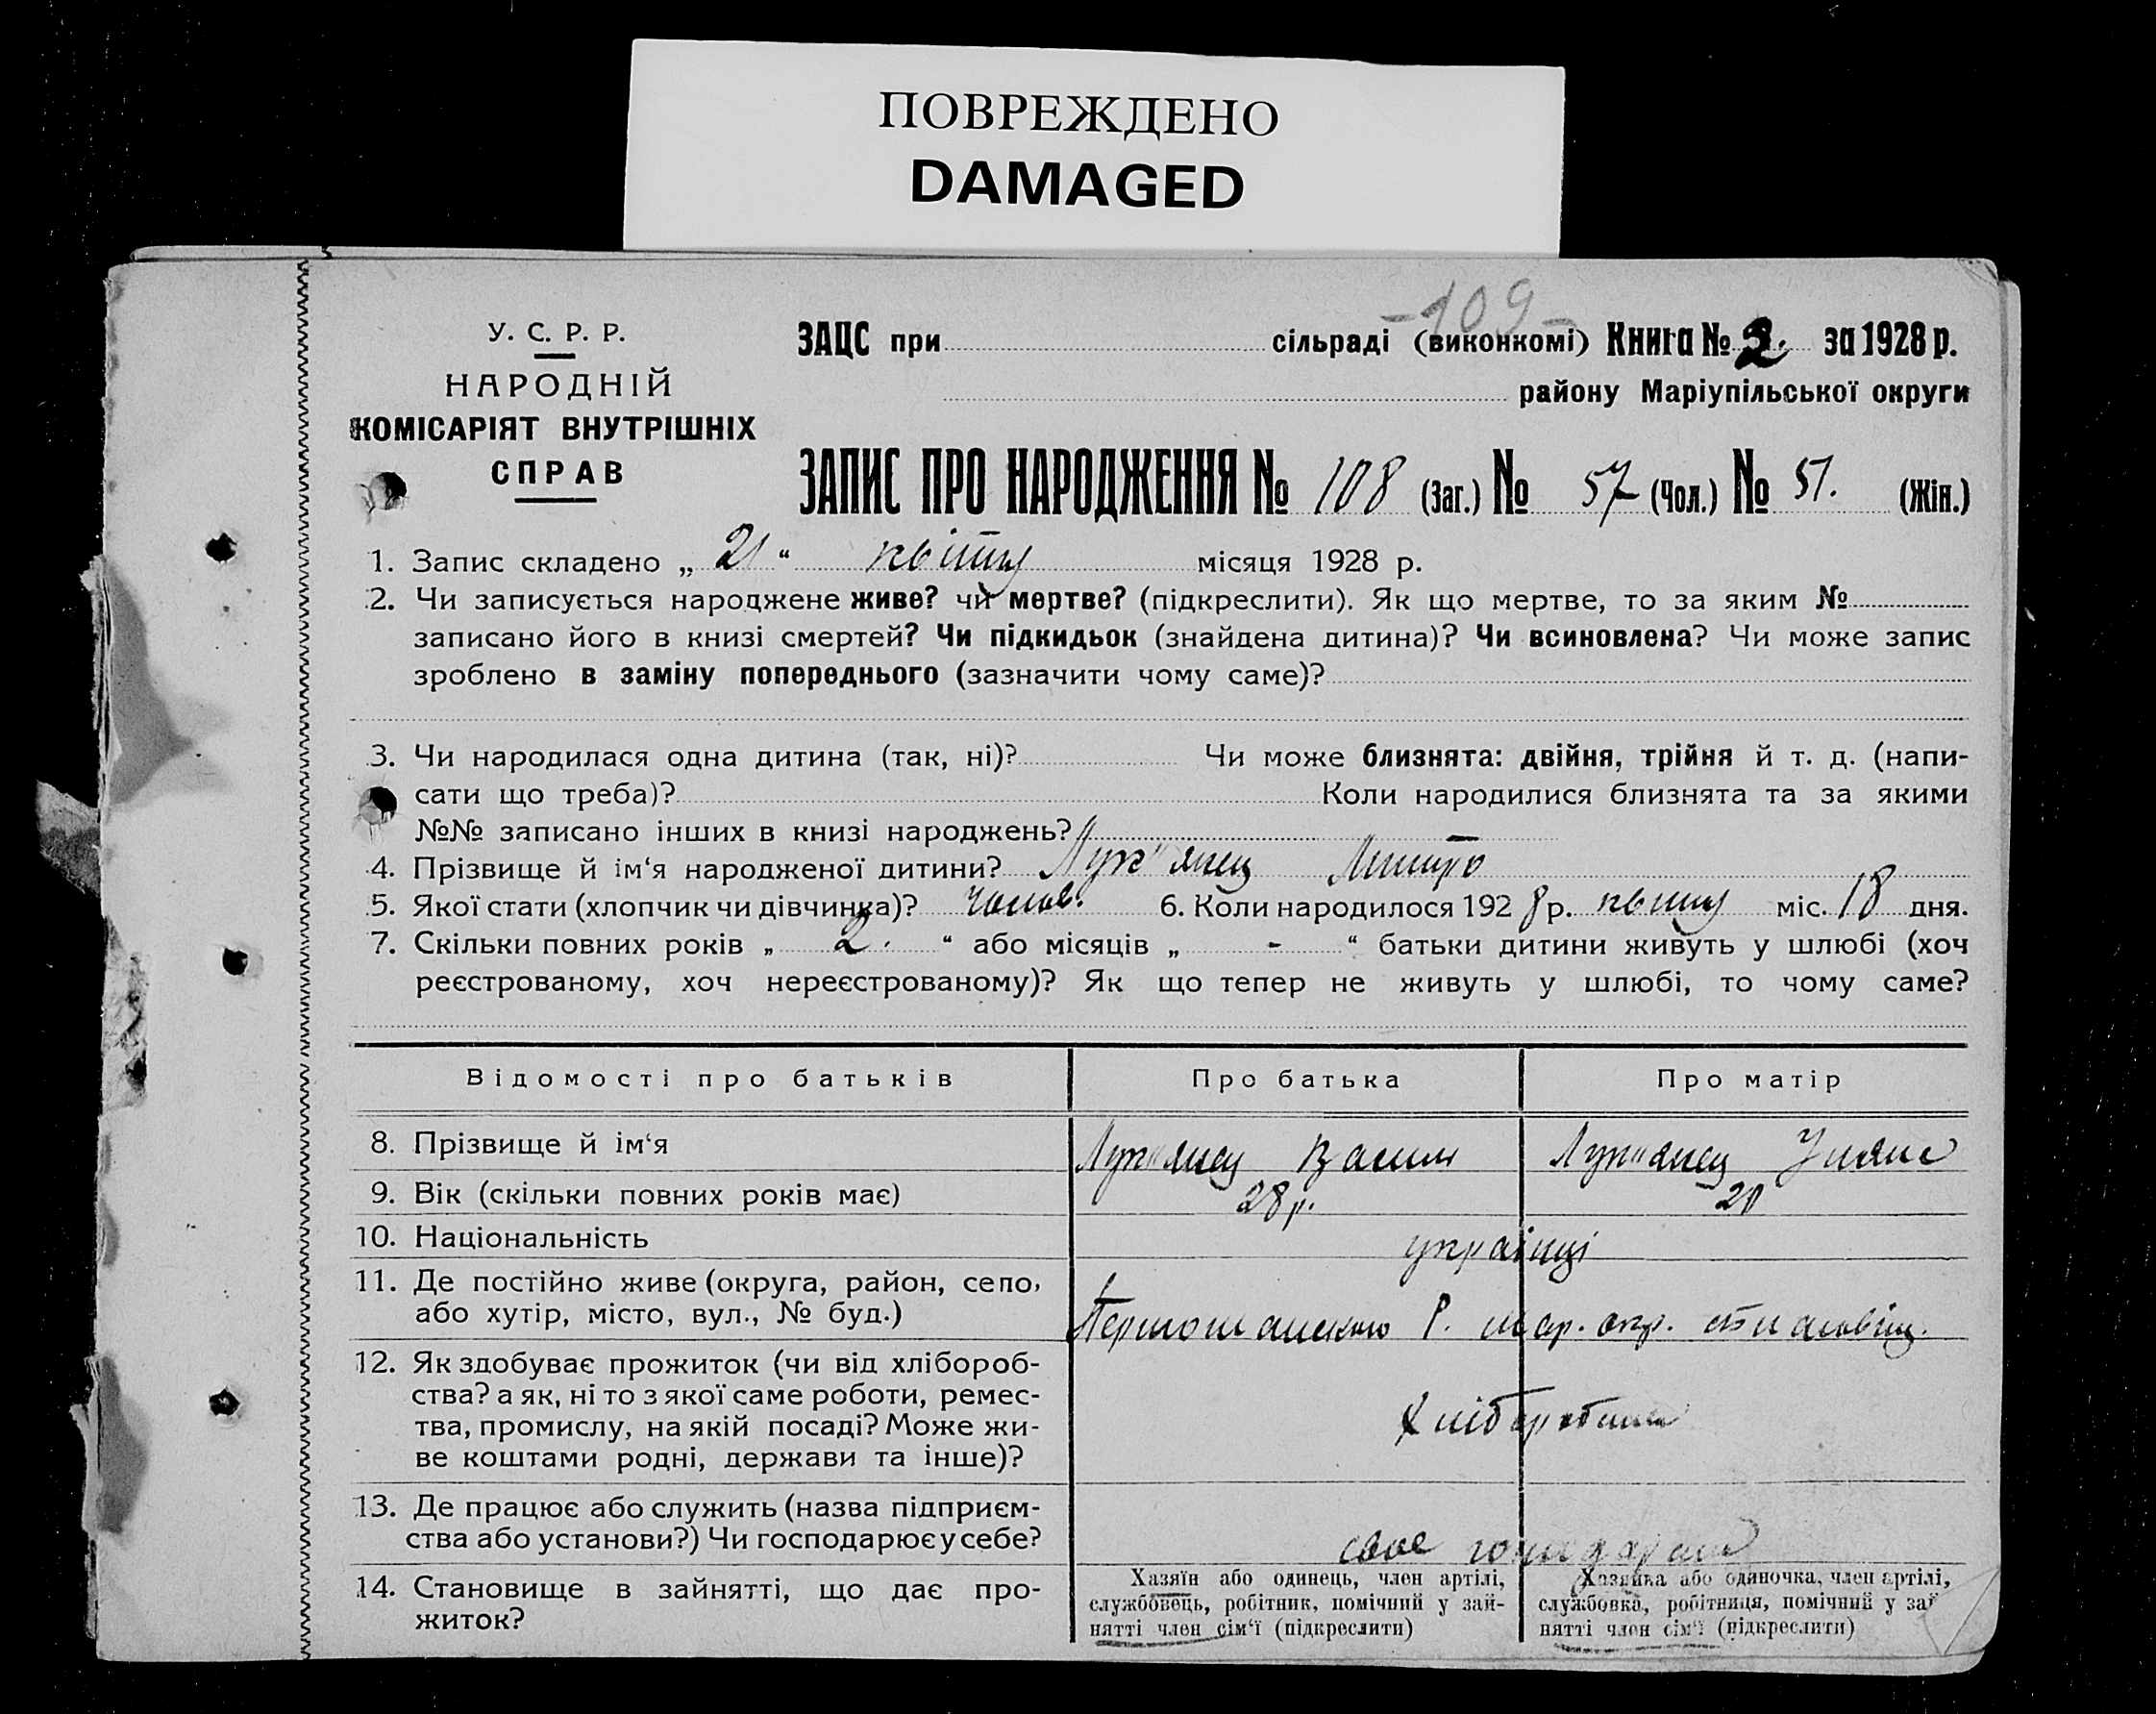 ПОВРЕЖДЕНО
DAMAGED
-109-
У. С. Р. Р.
НАРОДНІЙ
КОМІСАРІЯТ ВНУТРІШНІХ
СПРАВ
ЗАЦС при сільраді (виконкомі) Книга № 2. за 1928 р.
району Маріупільської округи
ЗАПИС ПРО НАРОДЖЕННЯ № 108 (Заг.) № 57 (Чол.) № 51. (Жін.)
1. Запис складено „ 21 “ квітня місяця 1928 р.
2. Чи записується народжене живе? чи мертве? (підкреслити). Як що мертве, то за яким №
записано його в книзі смертей? Чи підкидьок (знайдена дитина)? Чи всиновлена? Чи може запис
зроблено в заміну попереднього (зазначити чому саме)?
3. Чи народилася одна дитина (так, ні)? Чи може близнята: двійня, трійня й т. д. (напи-
сати що треба)? Коли народилися близнята та за якими
№№ записано інших в книзі народжень?
4. Прізвище й ім‘я народженої дитини? Лук"янец Дмитро
5. Якої стати (хлопчик чи дівчинка)? чолов. 6. Коли народилось 1928 р. квітня міс. 18 дня.
7. Скільки повних років „ 2. “ або місяців „ - “ батьки дитини живуть у шлюбі (хоч
реєстрованому, хоч нереєстрованому)? Як що тепер не живуть у шлюбі, то чому саме?
Відомості про батьків Про батька Про матір
8. Прізвище й ім‘я Лук"янец Васил Лук"янец Уляна
9. Вік (скільки повних років має) 28 р. 20
10. Національність українці
11. Де постійно живе (округа, район, село,
або хутір, місто, вул., № буд.) Р. мар. окр.
12. Як здобуває прожиток (чи від хлібороб-
ства? а як, ні то з якої саме роботи, ремес-
тва, промислу, на якій посаді? Може жи-
ве коштами родні, держави та інше)?
13. Де працює або служить (назва підприєм-
ства або установи?) Чи господарює у себе? своє
14. Становище в зайнятті, що дає про-
житок?
Хазяїн або одинець, член артілі,
службовець, робітник, помічний у зай-
нятті член сім‘ї (підкреслити)
Хазяйка або одиночка, член артілі,
службовка, робітниця, помічний у зай
нятті член сім‘ї (підкреслити)